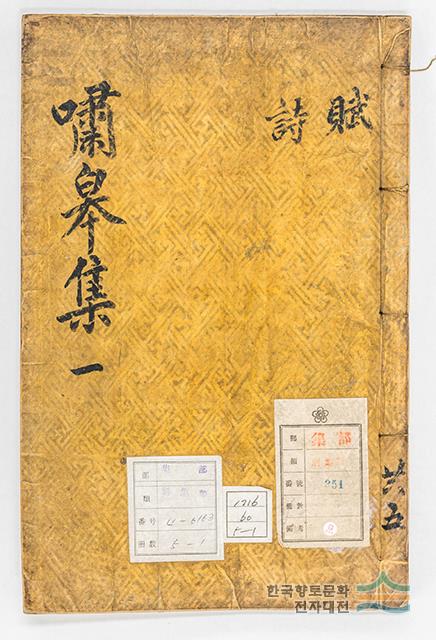 嘯皐集 一
賦
詩
共五
部 集 部
類
番号 4-6163
冊数 5-1
1716
60
5-1
部 集部
類
番號 251
한국향토문화
전자대전